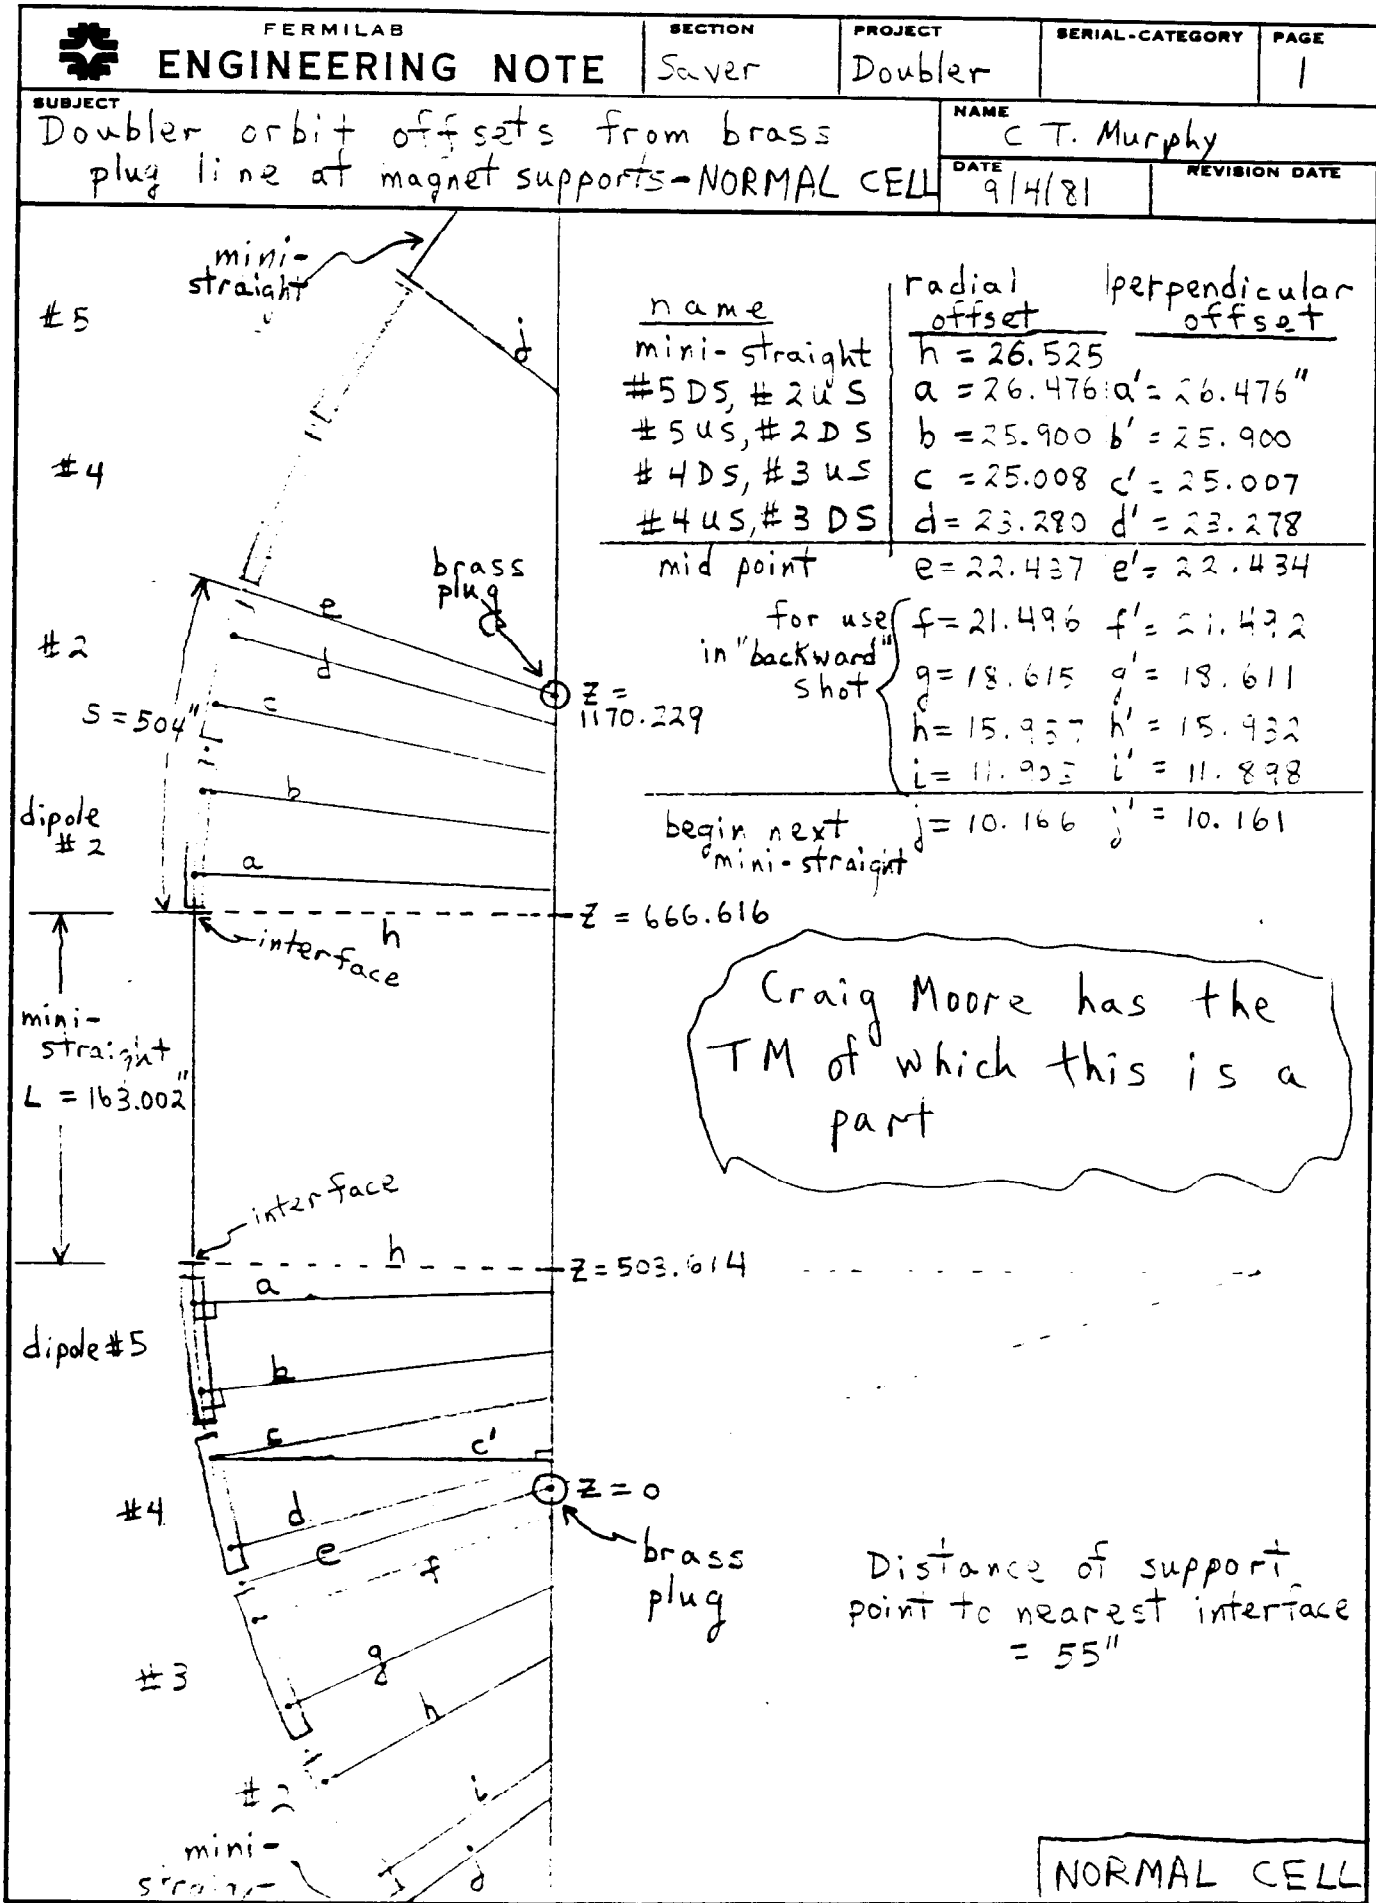 FERMILAB
ENGINEERING NOTE
SECTION
Saver
PROJECT
Doubler
SERIAL-CATEGORY
PAGE
1
SUBJECT
Doubler orbit offsets from brass
plug line at magnet supports - NORMAL CELL
NAME
C T. Murphy
DATE
9/4/81
REVISION DATE
mini-
straight
#5
j
#4
name
radial
offset
perpendicular
offset
mini-straight h = 26.525
#5 DS, #2 US a = 26.476 a' = 26.476"
#5 US, #2 DS b = 25.900 b' = 25.900
#4 DS, #3 US c = 25.008 c' = 25.007
#4 US, #3 DS d = 23.280 d' = 23.278
mid point e = 22.437 e' = 22.434
for use
in "backward"
shot
f = 21.496 f' = 21.492
g = 18.615 g' = 18.611
h = 15.937 h' = 15.932
i = 11.903 i' = 11.898
begin next
mini-straight
j = 10.166 j' = 10.161
brass
plug
e
#2
d
Z =
1170.229
S = 504"
c
b
dipole
#2
a
Z = 666.616
h
interface
mini-
straight
L = 163.002"
Craig Moore has the
TM of which this is a
part
interface
h
Z = 503.614
a
dipole #5
b
c
c'
#4
d
Z = 0
e
f
brass
plug
Distance of support
point to nearest interface
= 55"
g
#3
h
#2
i
j
mini-
NORMAL CELL